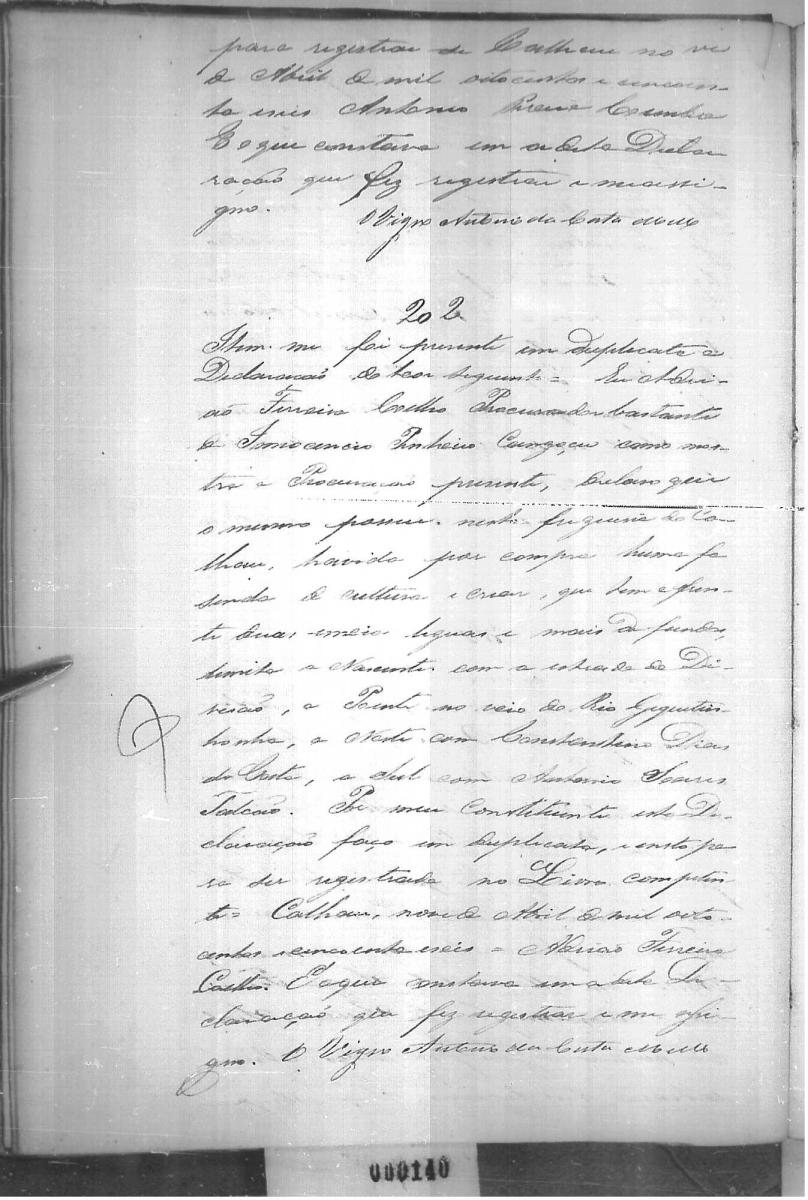 para registrar de Calhau no ve
d Abril d mil oitocentos e cincoen-
ta eseis Antonio Cunha
E o que constava em a dita Decla
ração que fiz registrar e meassi-
gno. O Vigro Antonio da Costa
202
Item. me foi presente em duplicata a
Declaração do teor seguinte = Eu Adri-
ão Ferreira Coelho Procurador bastante
d Innocencio Pinheiro Cangoçu como mos-
tra a Procuração presente, declaro que
o mesmo possue nesta freguesia do Ca-
lhau, havida por compra huma fa
senda de cultura e criar, que tem de fren-
te duas emeia leguas e mais de fundo,
limita a Nascente com a estrada da Di-
visão, a Poente no veio do Rio Gequitin-
honha, a Norte com Constantino Dias
da Costa, a Sul com Antonio Soares
Falcão. Por meu Constituinte esta De-
claração faço em duplicata, e insto pa
ra ser registrada no Livro competen-
te = Calhau, nove d Abril d mil oito-
centos ecincoenta eseis = Adrião Ferreira
Coelho. E o que constava em a dita De-
claração que fiz registrar e me assi-
gno. O Vigro Antonio da Costa
000140